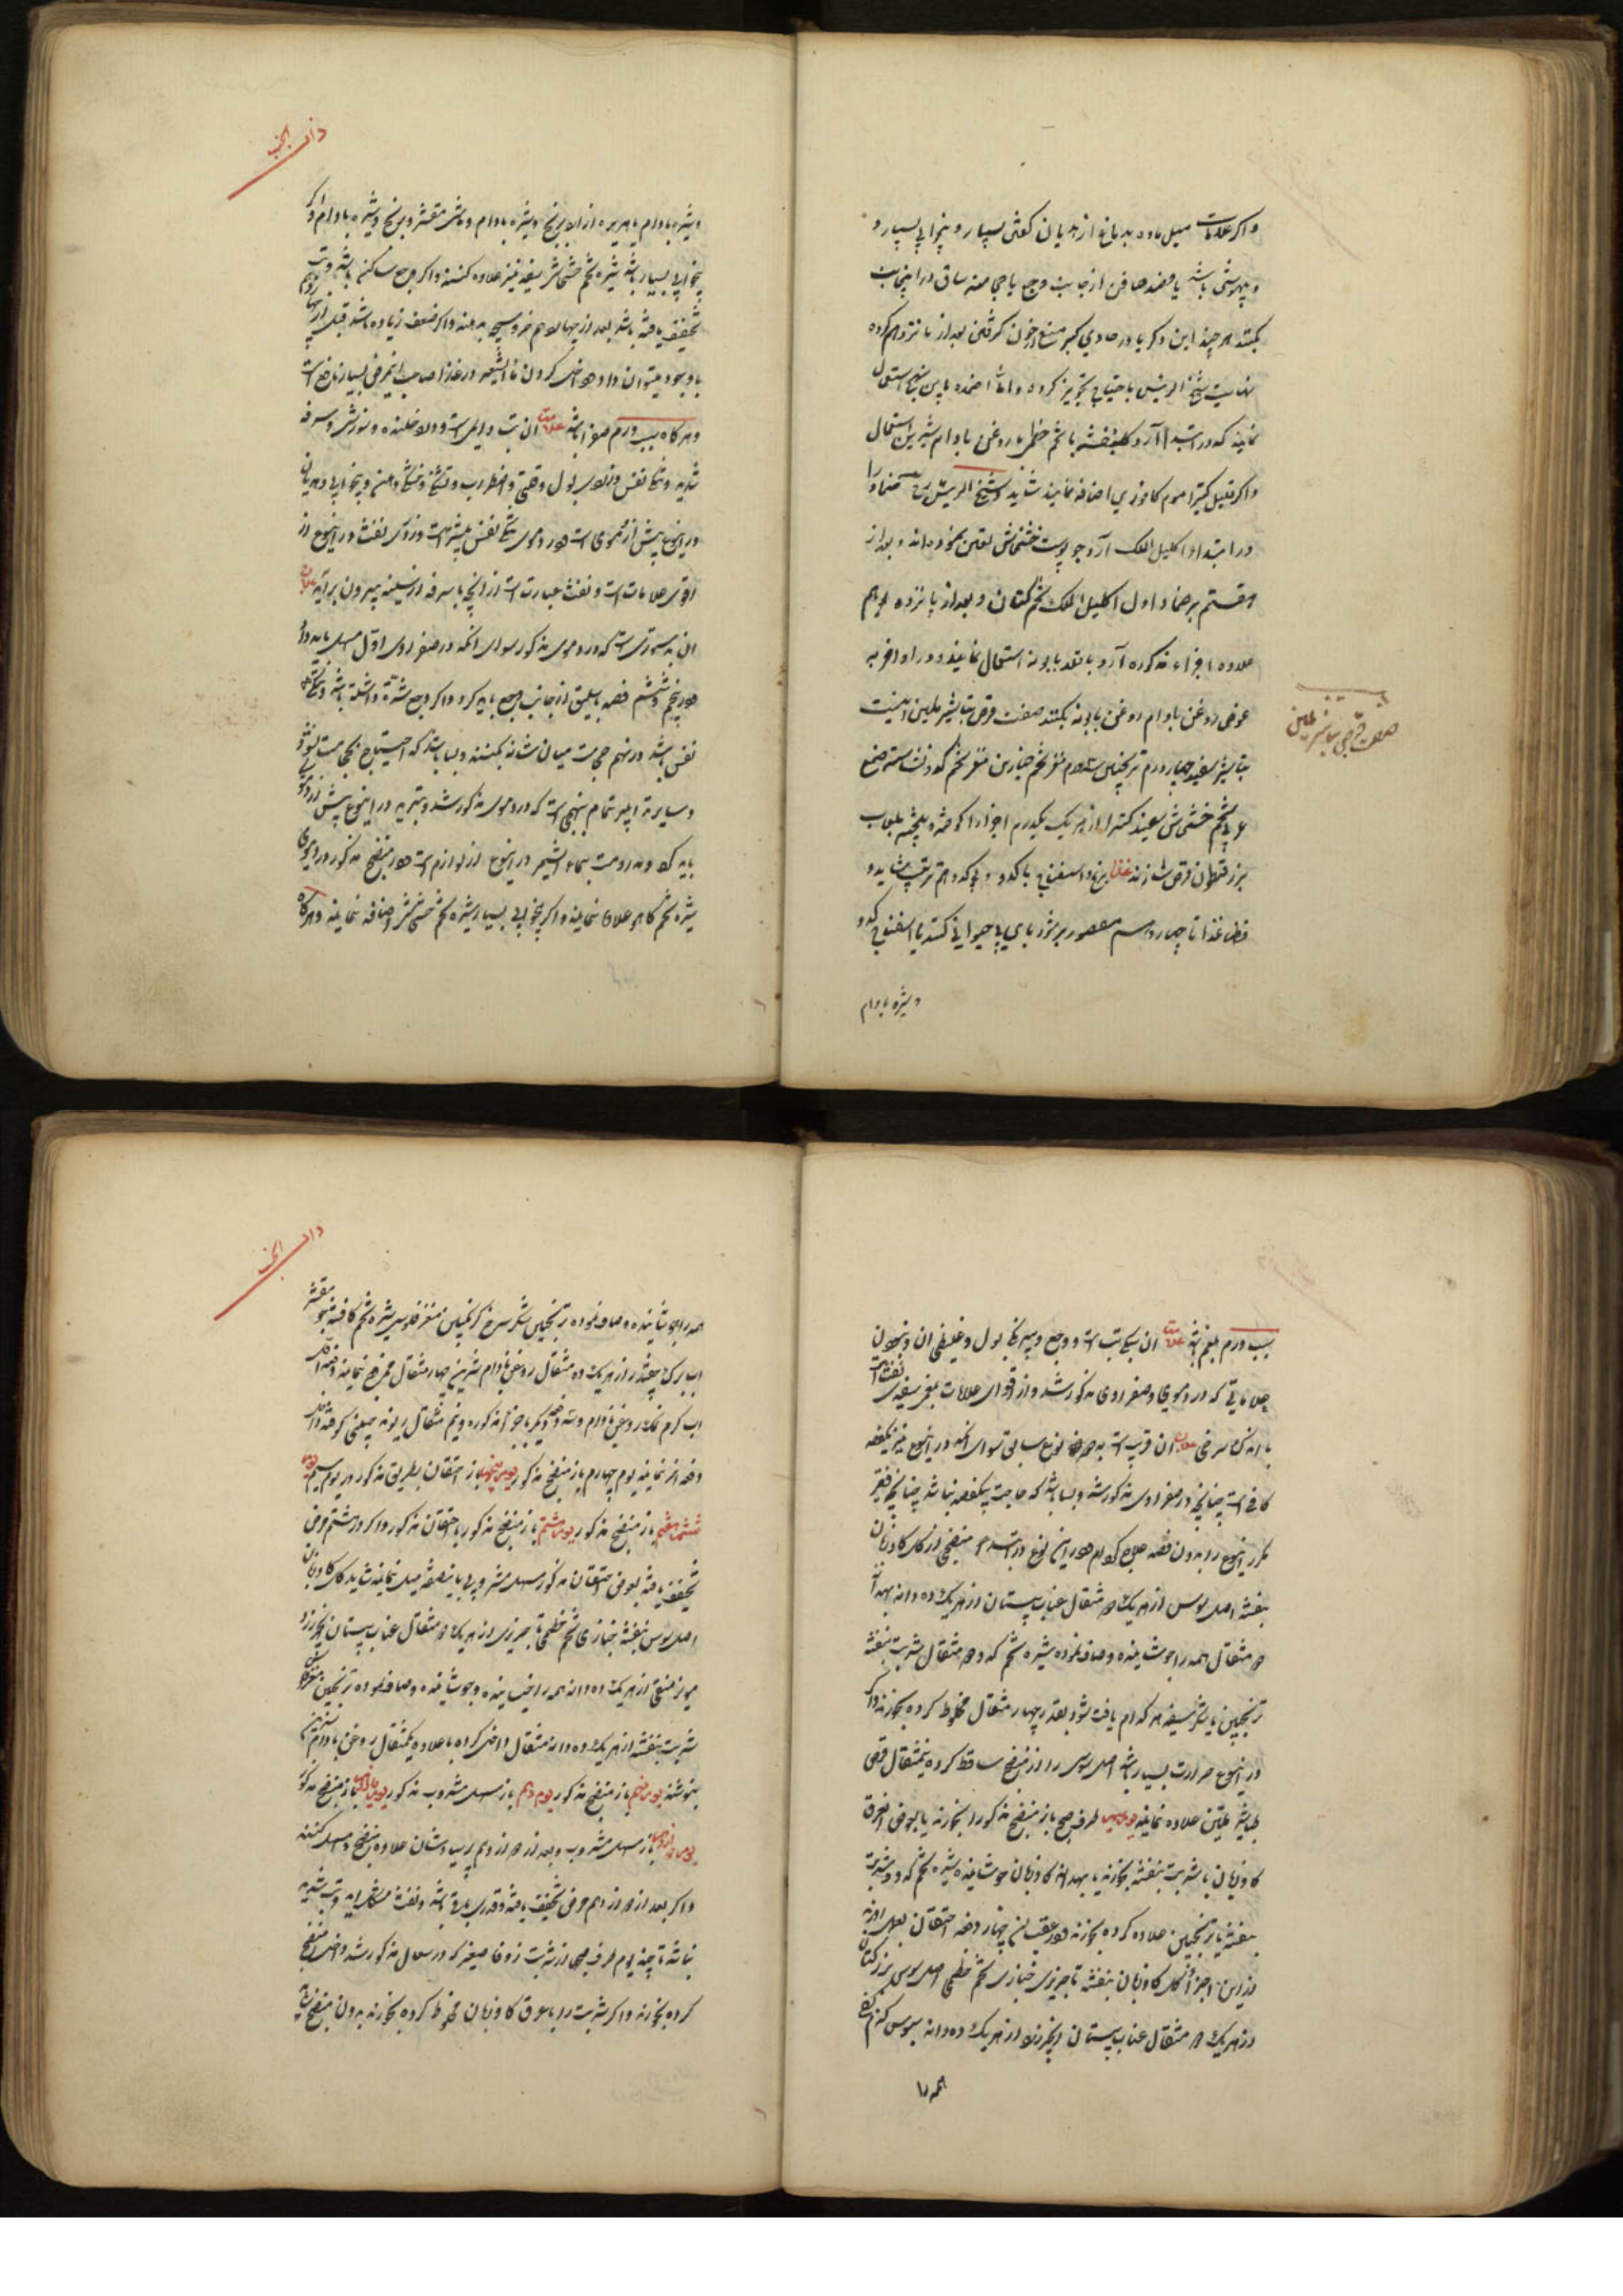 واکر علامات میل ماده بدماغ از هذیان کفتن بسیار و بیخوابی بسیار و
و بیهوشی باشد یا فصد صافن از جانب وجع یا حجامت ساق در اینجانب
بکنند هر چند این ذکر یا در حاوی کبیر منع از خون کرفتن بعد از پانزدهم کرده
شیخ الرئیس باحتیاج تجویز کرده و اما ضماد باین نهج استعمال
نمایند که در ابتدا آرد جو بنفشه با تخم خطمی با روغن بادام شیرین استعمال
واکر قلیل کتیرا موم کافوری اضافه نمایند شاید و شیخ الرئیس ضماد را
در ابتدا و اکلیل الملک آرد جو پوست خشخاش تعیین نموده اند و بعد از
هشتم بر ضماد اول اکلیل الملک تخم کتان و بعد از پانزدهم
علاوه اجزاء مذکوره آرد باقلا بابونه استعمال نمایند و در اواخر به
عوض روغن بادام روغن بابونه بکنند صفت قرص تباشیر ملین اینست
تباشیر سفید چهار درم ترنجبین سه درم مغز تخم خیارین مغز تخم کدو نشاسته صمغ
عربی تخم خشخاش سفید کتیرا از هریک یکدرم اجزا را کوفته و بیخته بلعاب
بزرقطونا قرص سازند غذا برنج و اسفناخ با کدو
غذا تا چهاردهم مقصور بر مزور بای بی حیوانی کنند یا اسفناخ کدو
و شیره بادام
صفت قرص تباشیر ملین
ذات الجنب
و شیره بادام یا هریره از برنج و شیره بادام و ماش مقشر و برنج و شیره بادام واکر
بیخوابی بسیار باشد شیره تخم خشخاش سفید نیز علاوه کنند واکر وجع ساکن باشد و تب
تخفیف یافته باشد بعد از چهاردهم خروس بچه بدهند واکر ضعف زیاده باشد قبل از چهاردهم
باو جوجه میتوان داد و داخل کردن ماء الشعیر در غذا صاحب این مرض بسیار نافع است
و هرکاه سبب ورم صفرا باشد علامت آن تب دایمی است و وجع خلنده و سوزش و سرفه
شدید و تنکی نفس و بول و قی و اضطراب و تشنکی و تلخی دهن و بیخوابی و هذیان
در این نوع بیش از دموی است و در دموی تنکی نفس بیشتر است و زردی نفث در این نوع از
اقوی علامات است و نفث عبارت است از آنچه با سرفه از سینه بیرون برآید علاج
آن بدستوری است که در دموی مذکور سوای آنکه در صفراوی اول مسهل باید داد
در پنجم و ششم فصد باسلیق از جانب وجع باید کرد واکر وجع شدت داشته باشد و تنکی
نفس باشد در نهم حجامت میان شانه بکنند و بسا باشد که احتیاج بحجامت نشود
و سایر تدابیر تمام بنهجی است که در دموی مذکور شد و تبرید در این نوع بیش از دموی
باید کرد و مداومت بماء الشعیر در این نوع از لوازم است و در منضج مذکور در دموی
شیره تخم کاهو علاوه نمایند واکر بیخوابی بسیار شیره تخم خشخاش اضافه نمایند و هرکاه
سبب ورم بلغم باشد علامت آن سبکی تب است و وجع و سفیدی بول و غلیظی آن و نبودن
علاماتی که در دموی و صفراوی مذکور شد و از اقوای علامات بلغمی سفیدی نفث است
با اندک سرخی علاج آن قریب است به نوع سابق سوای آنکه در این نوع نیز یکفصد
کافی است چنانچه در صفراوی مذکور شد و بسا باشد که حاجت بیکفصد نباشد چنانچه فقیر
مکرر این نوع را بدون فصد علاج کرده ام و در این نوع در ابتدا منضجی از کل کاوزبان
بنفشه اصل سوس از هریک دو مثقال عناب سپستان از هریک ده دانه بهدانه
دو مثقال همه را جوشانیده و صاف نموده شیره تخم کدو دو مثقال شربت بنفشه
ترنجبین یا شکر سفید هر کدام یافت شود بقدر چهار مثقال مخلوط کرده بخورند واکر
در این نوع حرارت بسیار باشد اصل سوس را از منضج ساقط کرده نیمثقال قرص
طباشیر ملین علاوه نمایند طرف صبح باز منضج مذکور را بخورند یا بعوض آن عرق
کاوزبان با شربت بنفشه بخورند یا بهدانه کاوزبان جوشانیده شیره تخم کدو و شربت
بنفشه یا ترنجبین علاوه کرده بخورند و در عقب آن چهار دفعه احتقان بعمل آورند
از این اجزا کل کاوزبان بنفشه تاجریزی خبازی تخم خطمی اصل سوس بزرکتان
از هریک دو مثقال عناب سپستان انجیر زرد از هریک ده دانه سبوس کندم
همه را
ذات الجنب
همه را جوشانیده و صاف نموده ترنجبین شکر سرخ مغز فلوس شیره تخم کافشه مقشر
آب برک چغندر از هریک ده مثقال روغن بادام شیرین چهار مثقال ممزوج نمایند
آب کرم نمک روغن بادام و سه دفعه دیکر با جزاء مذکوره و نیم مثقال ریوند چینی کوفته داخل
دفعه آخر نمایند یوم چهارم باز منضج مذکور یوم پنجم باز احتقان بطریق مذکور در یوم سیم یوم
ششم باز منضج مذکور یوم هشتم باز منضج مذکور یا احتقان مذکور واکر در هشتم مرض
تخفیف یافته بعوض احتقان مذکور مسهل مشروبی باینطریق میل نمایند شاید کل کاوزبان
اصل سوس بنفشه خبازی تخم خطمی تاجریزی از هریک دو مثقال عناب سپستان انجیر زرد
مویز منقی از هریک ده دانه همه را خیسانیده و جوشانیده و صاف نموده ترنجبین مغز فلوس
شربت بنفشه از هریک ده مثقال داخل کرده با علاوه یکمثقال روغن بادام شیرین
بنوشند یوم نهم باز منضج مذکور یوم دهم باز مسهل مشروب مذکور یوم یازدهم باز منضج مذکور
یوم دوازدهم باز مسهل مشروب و بعد از دوازدهم پرسیاوشان علاوه منضج و مسهل کنند
واکر بعد از دوازدهم مرض تخفیف یافته و قدری باقی باشد و نفث و تب شدید
نباشد تا چند یوم طرف صبح از شربت زوفا صغیر که در سعال مذکور شد داخل منضج
کرده بخورند واکر شربت را با عرق کاوزبان مخلوط کرده بخورند بدون منضج شاید